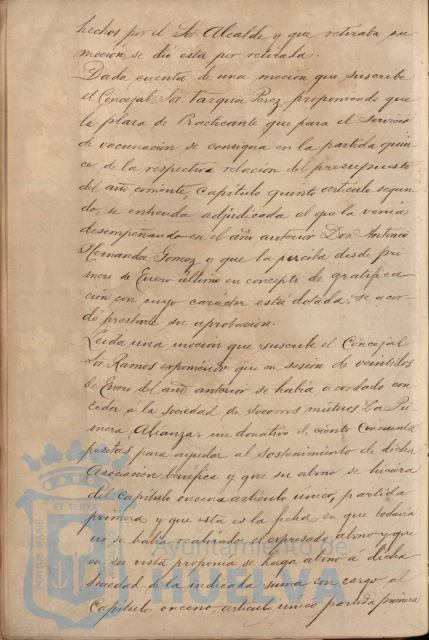 hechos por el Sor Alcalde y que retiraba su
moción, se dió esta por retirada.
Dada cuenta de una moción que suscribe
el Concejal Sor Vazquez Perez, proponiendo que
la plaza de Practicante que para el servicio
de vacunación se consigna en la partida quin
ce de la respectiva relación del presupuesto
del año corriente, Capítulo quinto artículo segun
do, se entienda adjudicada al que la venia
desempeñando en el año anterior Don Antonio
Hernandez Gomez y que la perciba desde pri
mero de Enero último en concepto de gratifica
ción con cuyo caracter está dotada, se acor
dó prestarle su aprobación.
Leida una moción que suscribe el Concejal
Sor Ramos exponiendo que en sesión de veintidos
de Enero del año anterior se habia acordado con
ceder á la sociedad de socorros mútuos La Pri
mera Alianza un donativo de ciento cincuenta
pesetas para ayudar al sostenimiento de dicha
Asociación benéfica y que su abono se hiciera
del Capítulo onceno artículo unico, partida
primera y que esta es la fecha en que todavia
no se habia realizado el expresado abono y que
en su vista proponia se haga abono á dicha
sociedad de la indicada suma con cargo al
Capítulo onceno, artículo unico partida primera
Ayuntamiento de
HUELVA
PORTUS MARIS
ET TERRÆ